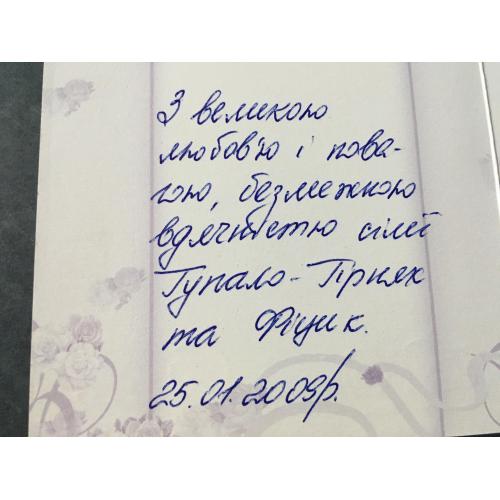 З великою
любов'ю і пова-
гою, безмежною
вдячністю сім'ї
Тупало-Гірняк
та Фіцик.
25.01.2009р.